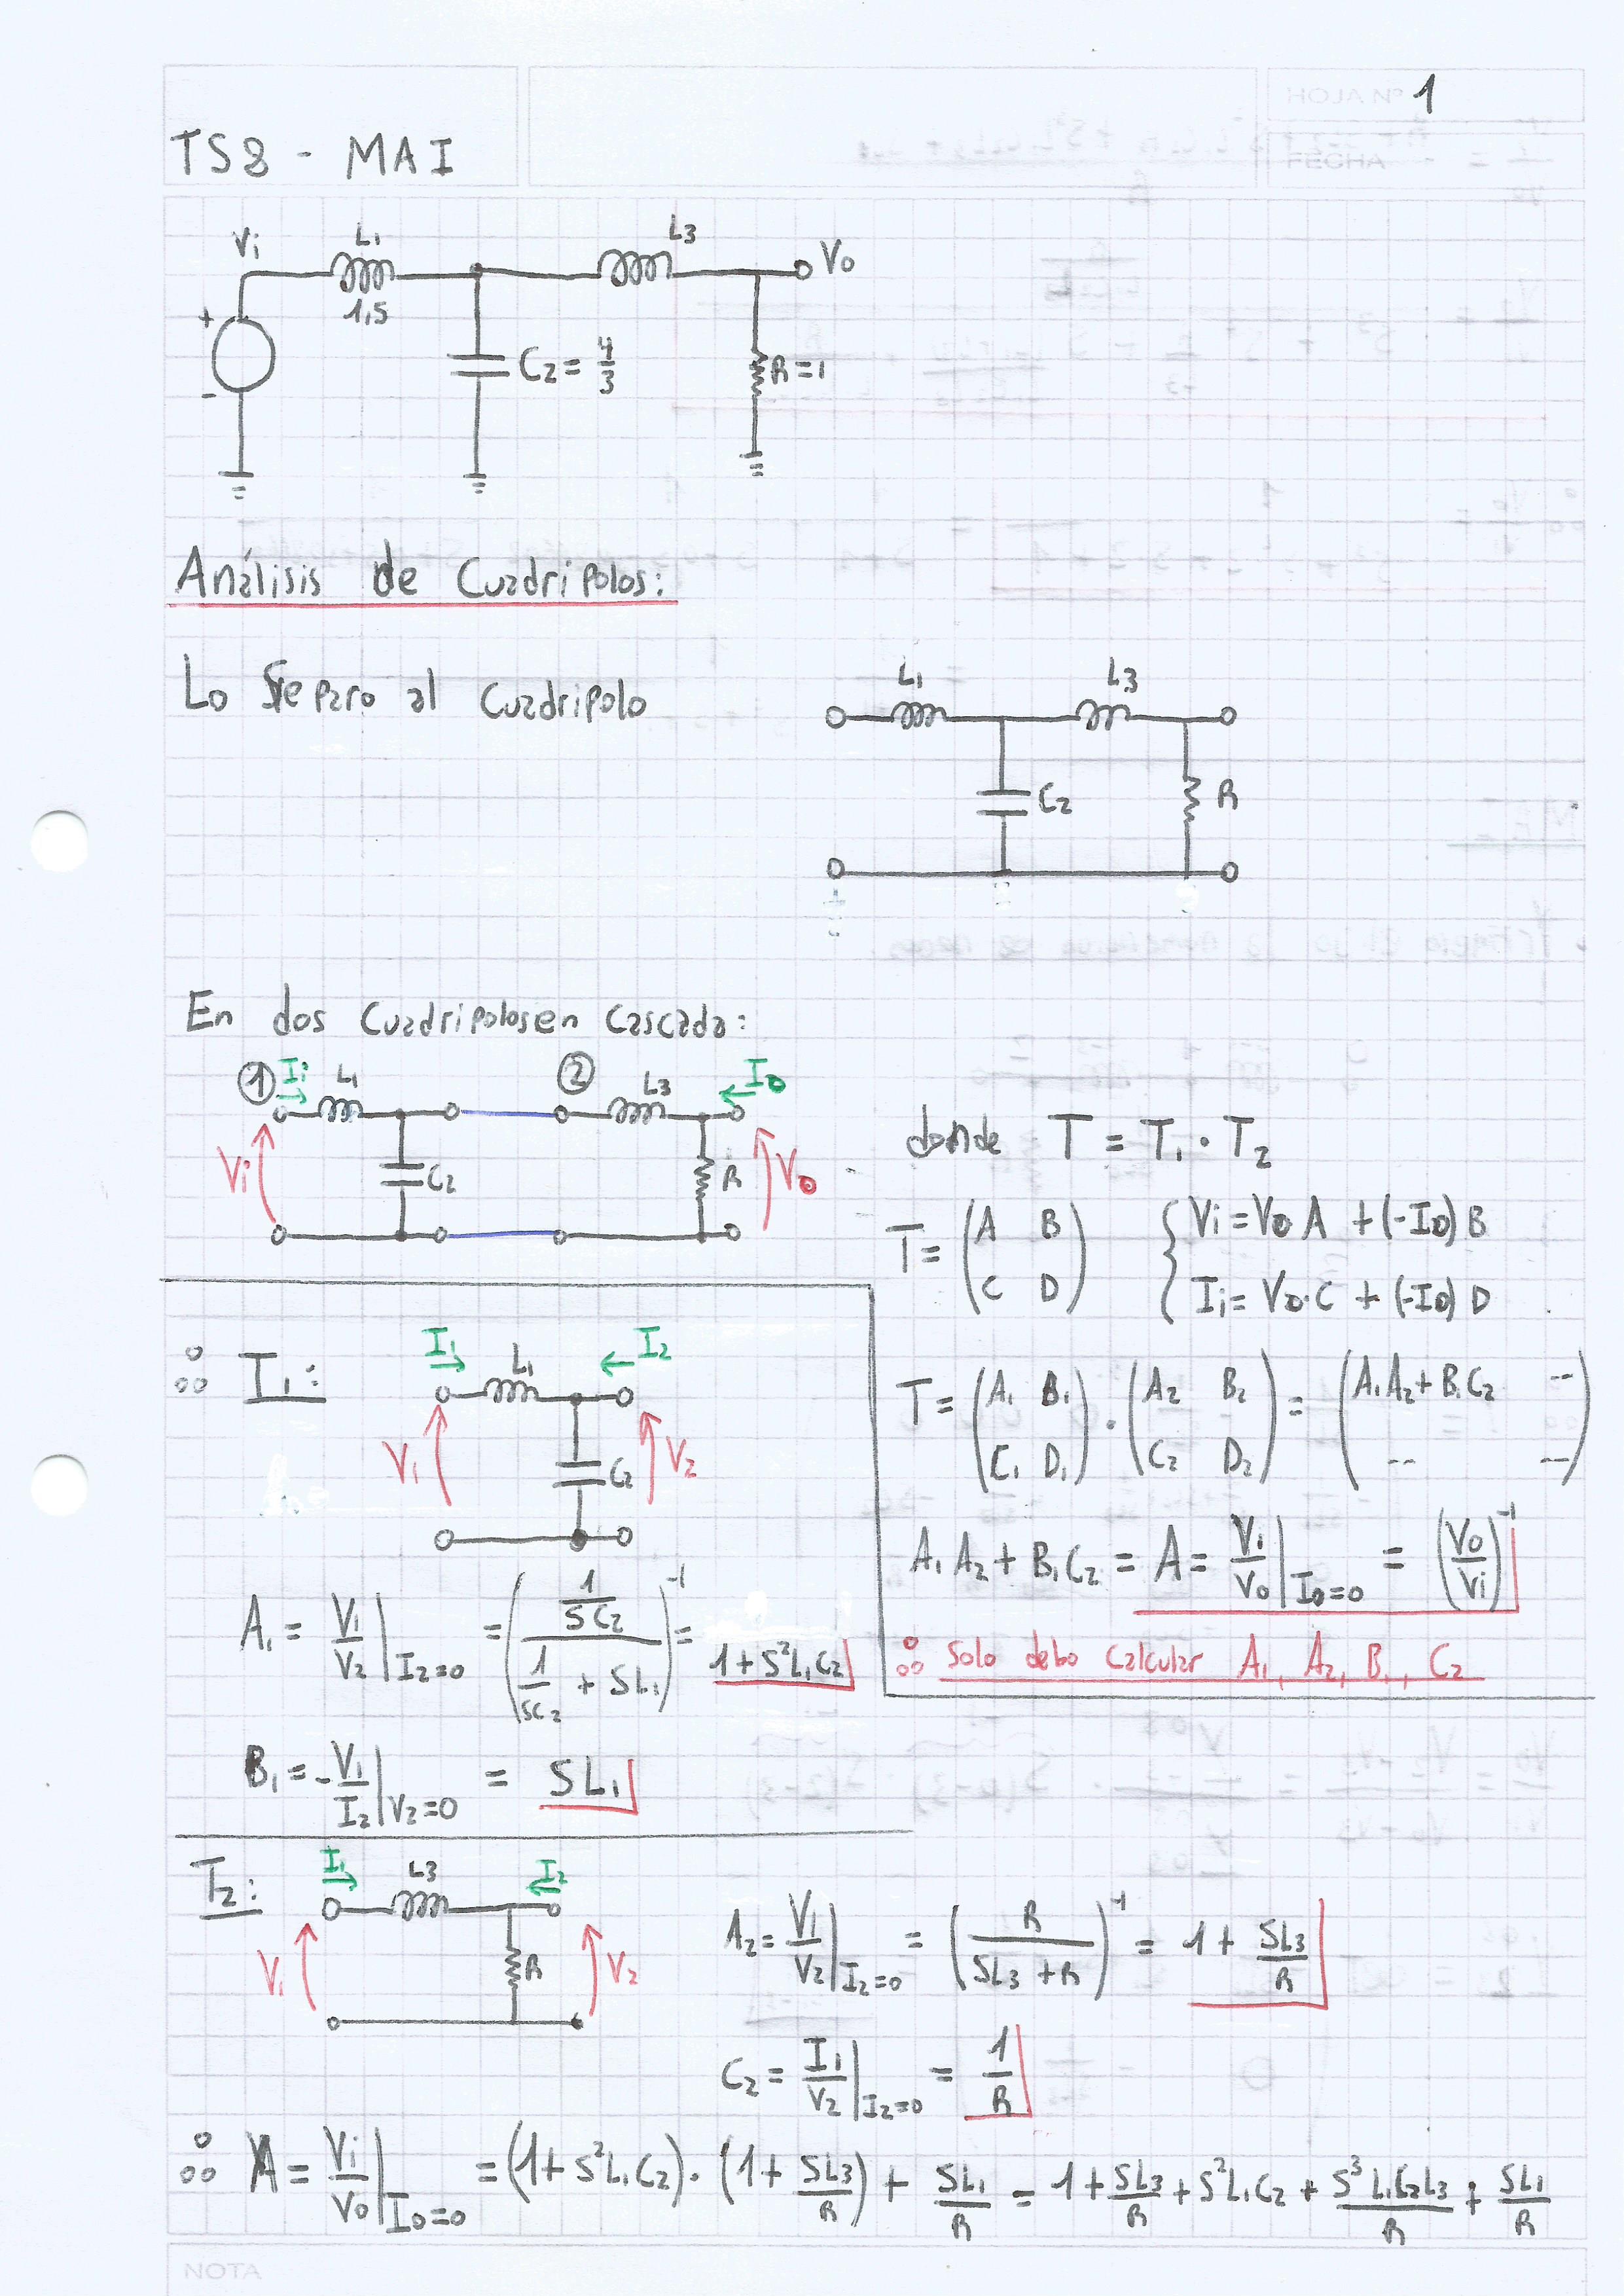 HOJA Nº 1
FECHA
TS8 - MAI
Vi L1 L3 Vo
1,5
+
C2 = 4/3 R=1
-
Análisis de Cuadripolos:
Lo Separo al Cuadripolo
L1 L3
C2 R
En dos Cuadripolos en Cascada:
1 Ii L1 2 L3 Io
Vi C2 R Vo
donde T = T1 · T2
T = (A B
C D)
{Vi = Vo A + (-Io) B
Ii = Vo·C + (-Io) D
T = (A1 B1
C1 D1) · (A2 B2
C2 D2) = (A1A2 + B1C2 --
-- --)
A1 A2 + B1C2 = A = Vi/Vo |Io=0 = (Vo/Vi)^-1
∴ Solo debo Calcular A1, A2, B1, C2
∴ T1:
I1 L1 I2
V1 C2 V2
A1 = V1/V2 |I2=0 = ((1/SC2)/(1/SC2 + SL1))^-1 = 1+S²L1C2
B1 = -V1/I2 |V2=0 = SL1
T2:
I1 L3 I2
V1 R V2
A2 = V1/V2 |I2=0 = (R/(SL3 + R))^-1 = 1 + SL3/R
C2 = I1/V2 |I2=0 = 1/R
∴ A = Vi/Vo |Io=0 = (1+S²L1C2)·(1+SL3/R) + SL1/R = 1+SL3/R + S²L1C2 + S³L1C2L3/R + SL1/R
NOTA